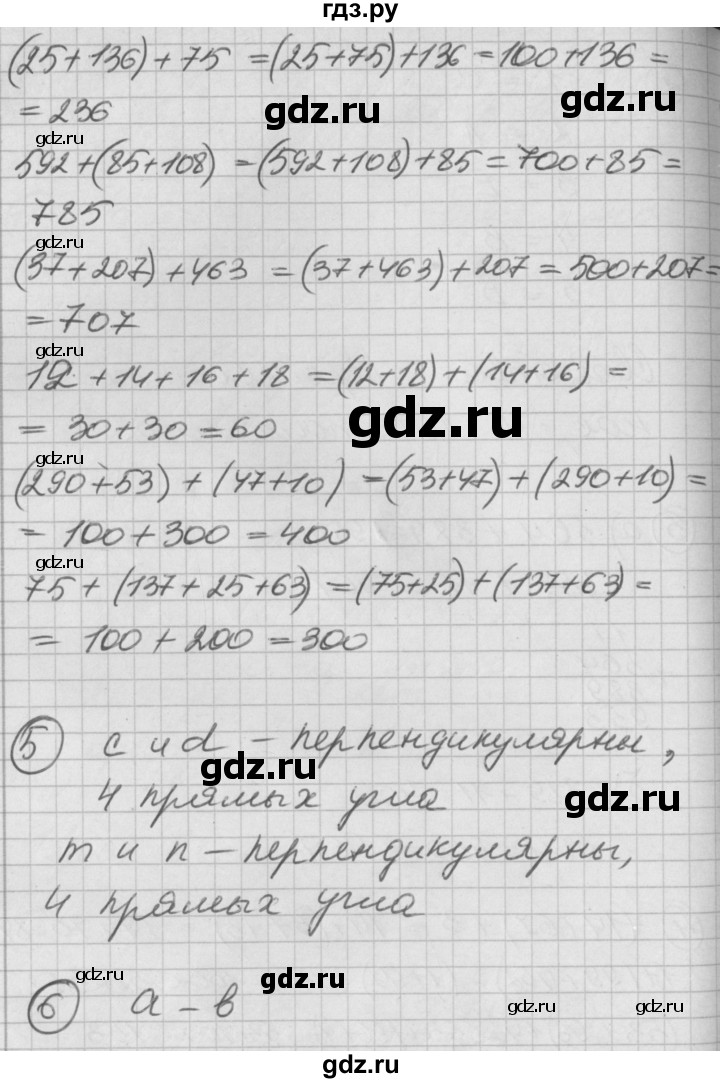 гдз.ру
(25+136)+75 =(25+75)+136=100+136=
=236
gdz.ru
gdz.ru
gdz.ru
592+(85+108) =(592+108)+85=700+85=
785
gdz.ru
(37+207)+463 =(37+463)+207=500+207=
=707
gdz.ru
12+14+16+18 =(12+18)+(14+16)=
= 30+30=60
gdz.ru
gdz.ru
(290+53)+(47+10) =(53+47)+(290+10)=
= 100+300=400
gdz.ru
75+(137+25+63) =(75+25)+(137+63)=
= 100+200=300
5 c и d - перпендикулярны,
gdz.ru
4 прямых угла
gdz.ru
m и n - перпендикулярны,
4 прямых угла
gdz.ru
gdz.ru
6 a - в
gdz.ru
gdz.ru
gdz.ru